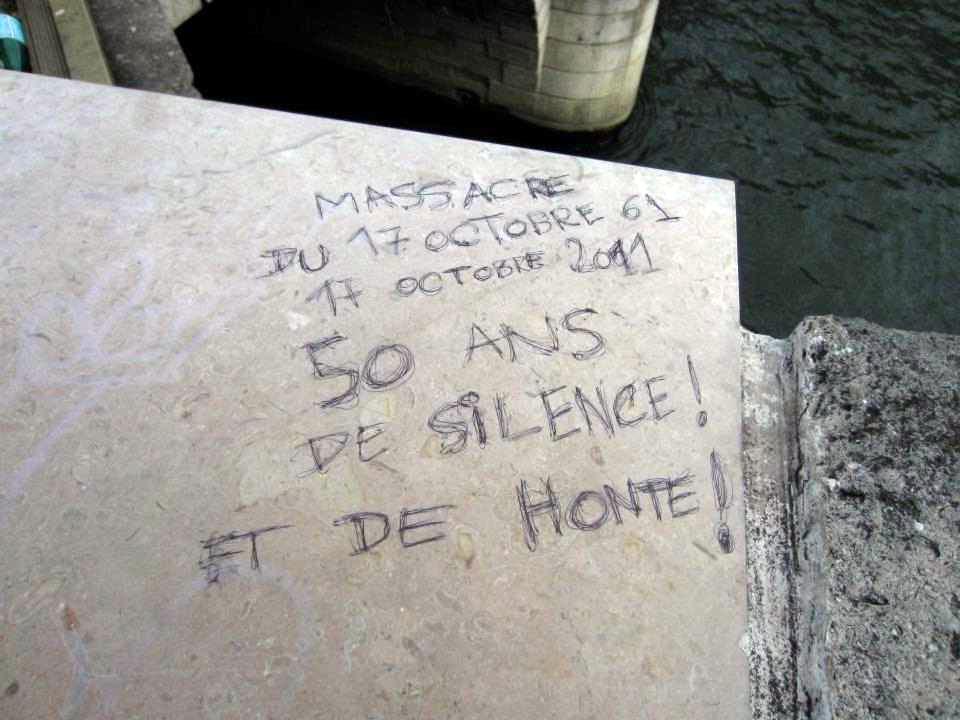 MASSACRE
DU 17 OCTOBRE 61
17 OCTOBRE 2011
50 ANS
DE SiLENCE !
ET DE HONTE !